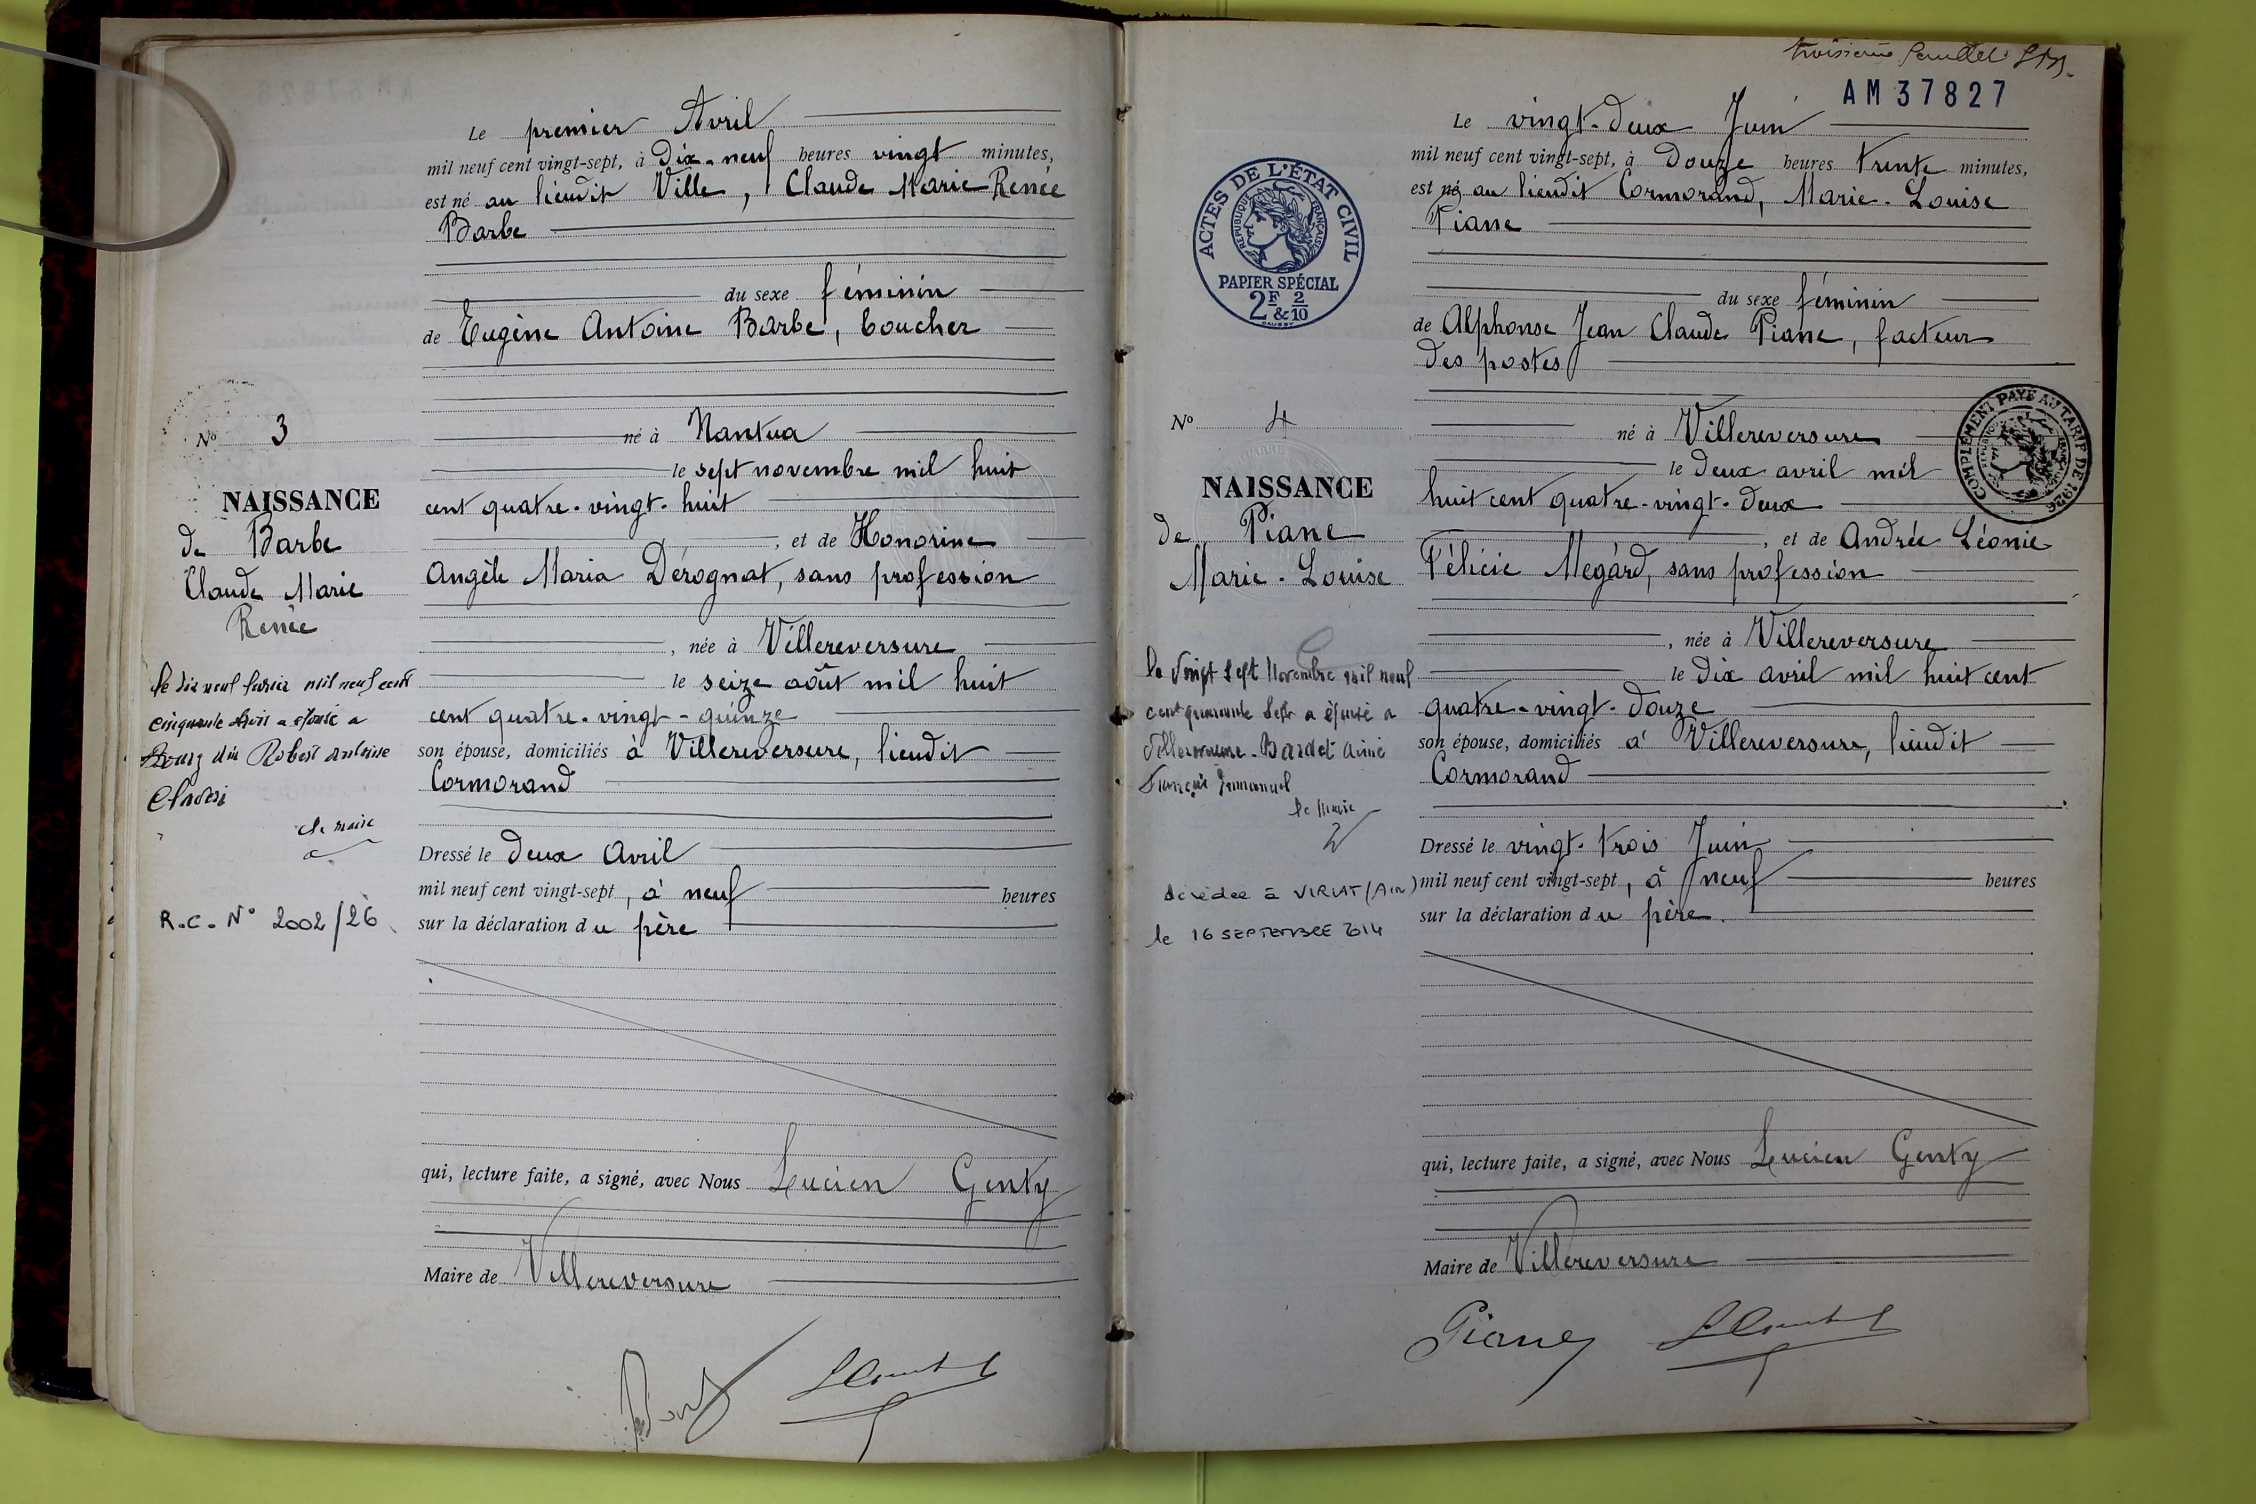 Le premier Avril
mil neuf cent vingt-sept, à Dix-neuf heures vingt minutes,
est né au lieudit Ville, Claude Marie Renée
Barbe
du sexe féminin
de Eugène Antoine Barbe, boucher
né à Nantua
le sept novembre mil huit
cent quatre-vingt-huit
, et de Honorine
Angèle Maria Dérognat, sans profession
, née à Villereversure
le seize août mil huit
cent quatre-vingt-quinze
son épouse, domiciliés à Villereversure, lieudit
Cormorand
Dressé le deux Avril
mil neuf cent vingt-sept, à neuf heures
sur la déclaration du père
qui, lecture faite, a signé, avec Nous Lucien Genty
Maire de Villereversure
No 3
NAISSANCE
de Barbe
Claude Marie
Renée
le dix neuf février mil neuf cent
cinquante trois a épousé a
Robert Antoine
le maire
R.C. N° 2002/26
troisième feuillet
AM37827
Le vingt-deux Juin
mil neuf cent vingt-sept, à Douze heures trente minutes,
est né au lieudit Cormorand, Marie-Louise
Piane
du sexe féminin
de Alphonse Jean Claude Piane, facteur
des postes
né à Villereversure
le deux avril mil
huit cent quatre-vingt-deux
, et de Andrée Léonie
Félicie Megard, sans profession
, née à Villereversure
le dix avril mil huit cent
quatre-vingt-douze
son épouse, domiciliés à Villereversure, lieudit
Cormorand
Dressé le vingt-trois Juin
mil neuf cent vingt-sept, à neuf heures
sur la déclaration du père.
qui, lecture faite, a signé, avec Nous Lucien Genty
Maire de Villereversure
Piane
ACTES DE L'ÉTAT CIVIL
RÉPUBLIQUE FRANÇAISE
PAPIER SPÉCIAL
2F & 2/10
COMPLÉMENT PAYÉ AU TARIF DE 1926
No 4
NAISSANCE
de Piane
Marie-Louise
le vingt sept Novembre mil neuf
cent quarante sept a épousé a
Villereversure Bardet Aimé
François Emmanuel
le Maire
décédée à VIRIAT (Ain)
le 16 SEPTEMBRE 2014